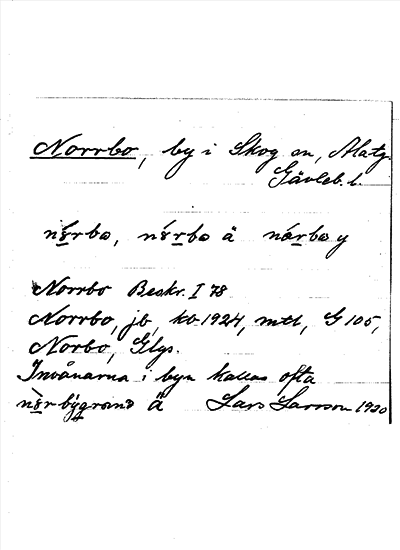 Norrbo, by i Skog sn, Alatg.
Gävleb. l.
nǒrbo, nórbo ä nǒrbo y
Norrbo Beskr. I 78
Norrbo, jb, kb 1924, mtl, G 105,
Norbo, Glys.
Invånarna i byn kallas ofta
nòrbýgrand Ä Lars Larsson 1920